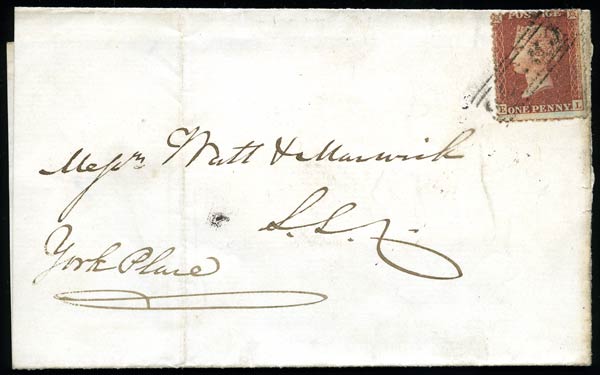 POSTAGE
E ONE PENNY L
Messrs Watt & Marwick
S.S.C.
York Place